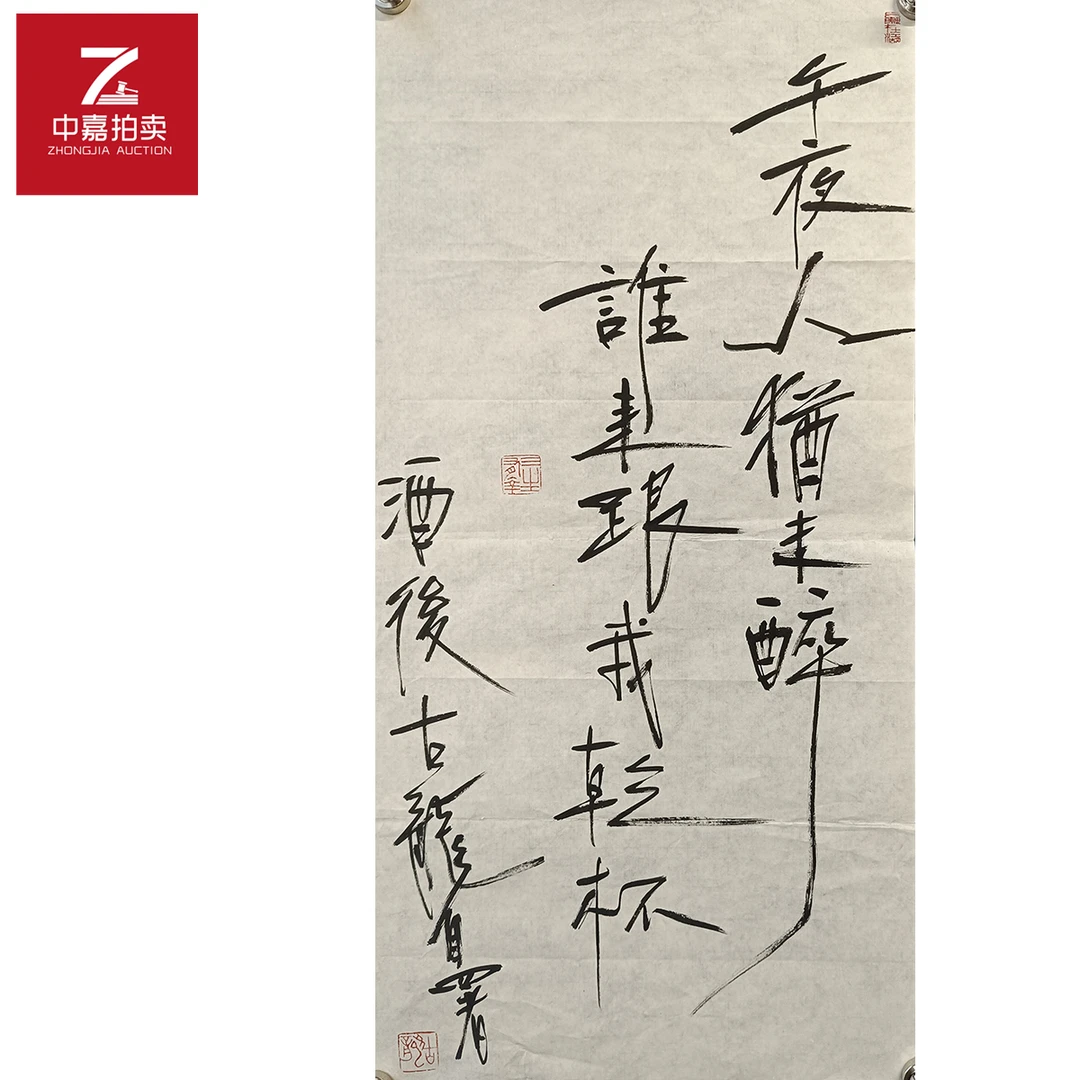 中嘉拍卖
ZHONGJIA AUCTION
午夜人猶未醉
誰来跟我乾杯
酒後古龍自署